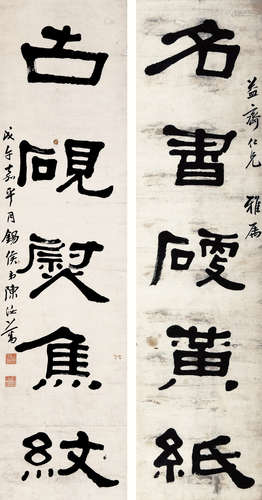 益齋仁兄 雅屬
名書硬黃紙
古硯熨焦紋
戊午嘉平月錫侯弟陳